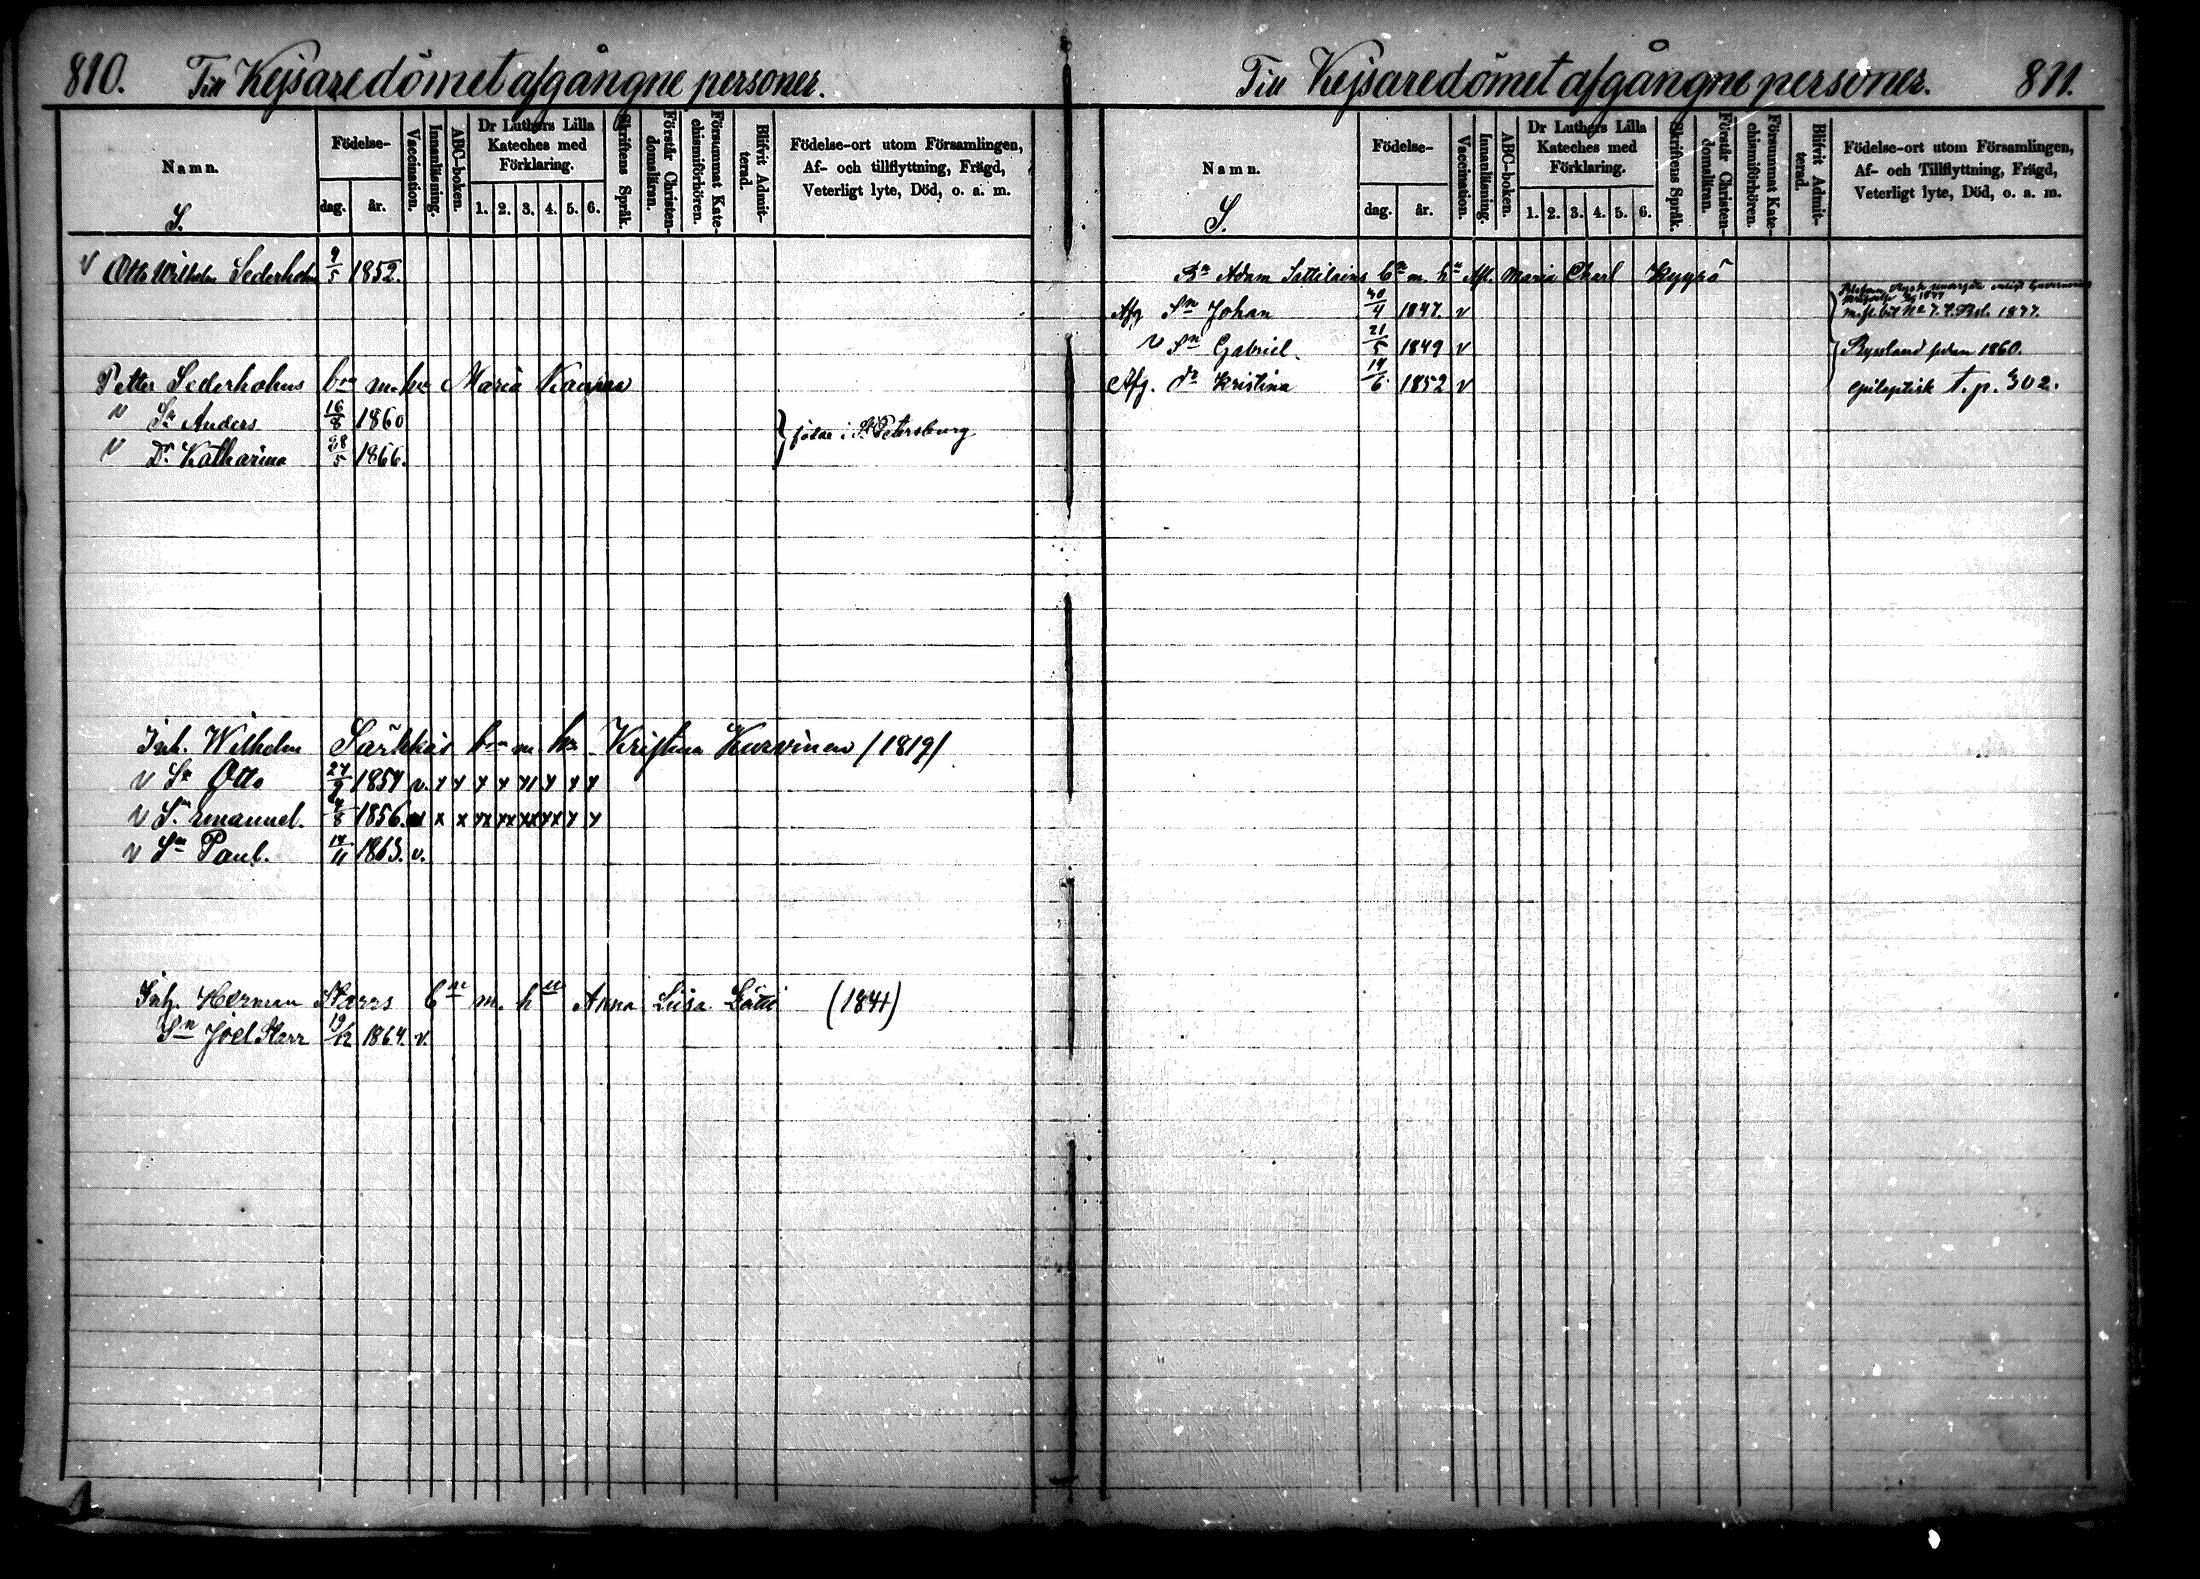 810. Till Kejsaredömet afgångne personer.
Namn.
S.
Födelse-
dag.
år.
Vaccination.
Innanläsning.
ABC-boken.
Dr Luthers Lilla
Kateches med
Förklaring.
1. 2. 3. 4. 5. 6.
Skriftens Språk.
Förstår Christen-
domsläran.
Försummat Kate-
chismiförhören.
Blifvit Admit-
terad.
Födelse-ort utom Församlingen,
Af- och tillflyttning, Frägd,
Veterligt lyte, Död, o. a. m.
v Otto Wilhelm Sederholm 9/5 1852.
Petter Sederholms bn m. hu Maria
v Sn Anders 16/8 1860
v Dr Katharina 28/5 1866.
} födde i St Petersburg
Inh. Wilhelm Särkkäs bn m. hu Kristina Kurvinen /1819/
v Sn Otto 27/9 1854 v. x x x x x x x x
v Sn Emanuel. 4/8 1856. x x x xx xx xx xx x x
v Sn Paul. 14/11 1863. v.
Inh. Herman Starrs bn m. hu Anna Lisa Lätti (1841)
Sn Joel Starr 19/12 1864. v.
Till Kejsaredömet afgångne personer. 811.
Namn.
S.
Födelse-
dag.
år.
Vaccination.
Innanläsning.
ABC-boken.
Dr Luthers Lilla
Kateches med
Förklaring.
1. 2. 3. 4. 5. 6.
Skriftens Språk.
Förstår Christen-
domsläran.
Försummat Kate-
chismiförhören.
Blifvit Admit-
terad.
Födelse-ort utom Församlingen,
Af- och Tillflyttning, Frägd,
Veterligt lyte, Död, o. a. m.
Bn Adam Sattilains bn m. hu Afl. Maria Charl Kyyrö
Afg Sn Johan 30/4 1847. v
No 7. 1877.
v Sn Gabriel. 21/5 1849 v Ryssland sedan 1860.
Afg. dr Kristina 14/6 1852 v epileptisk t. p. 302.